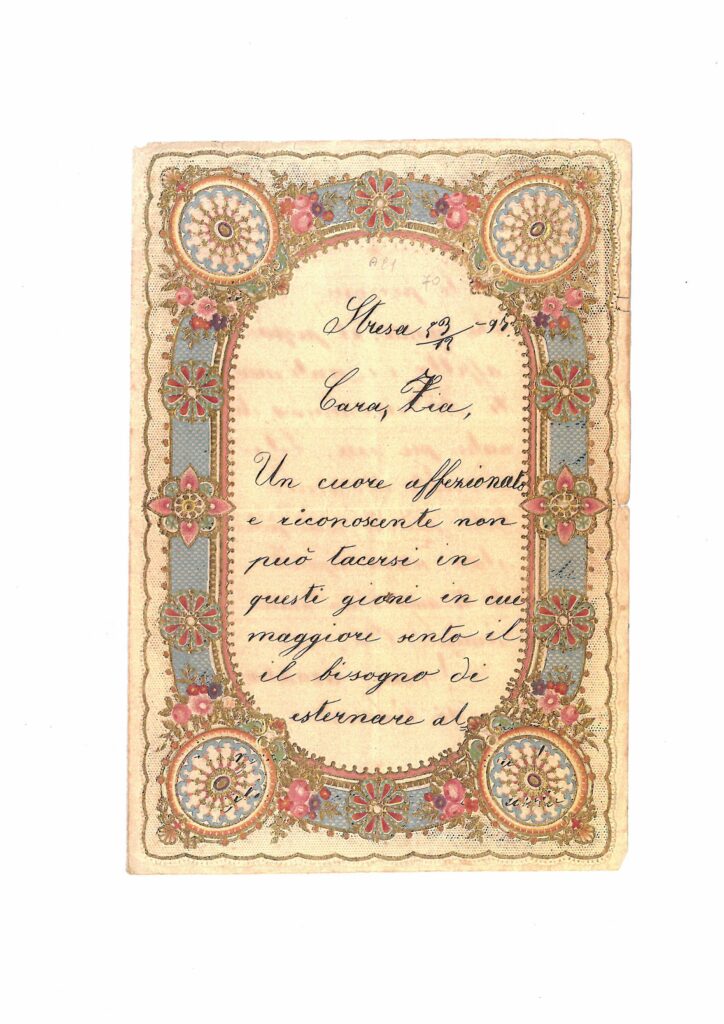 Stresa 23/12 -95
Cara, Zia,
Un cuore affezionato
e riconoscente non
può tacersi in
questi gioni in cue
maggiore sento il
il bisogno di
esternare al=